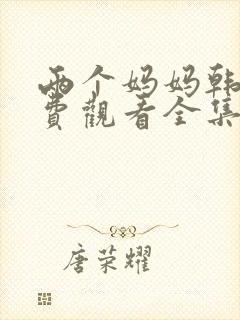 两个妈妈韩
费觀看全集
唐荣耀